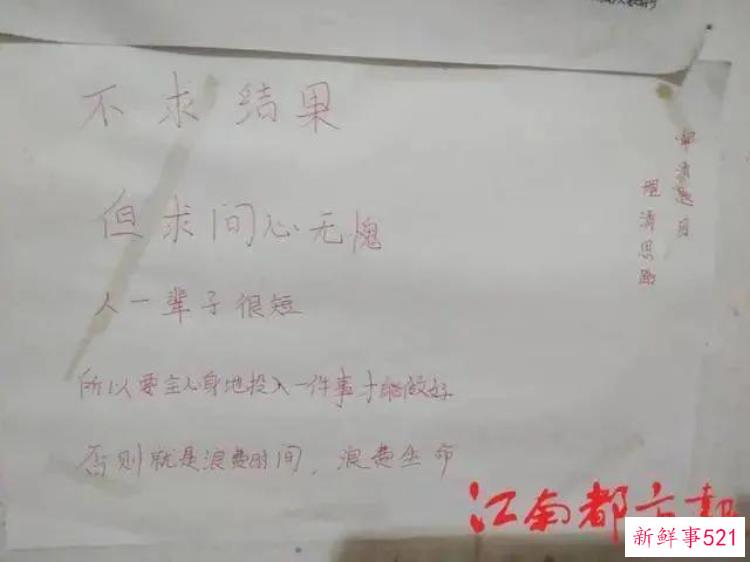 不求结果
但求间心无愧
人一辈子很短
所以要全心身地投入一件事才能做好
否则就是浪费时间，浪费生命
审清题目
理清思路
江南都市报
新鲜事521